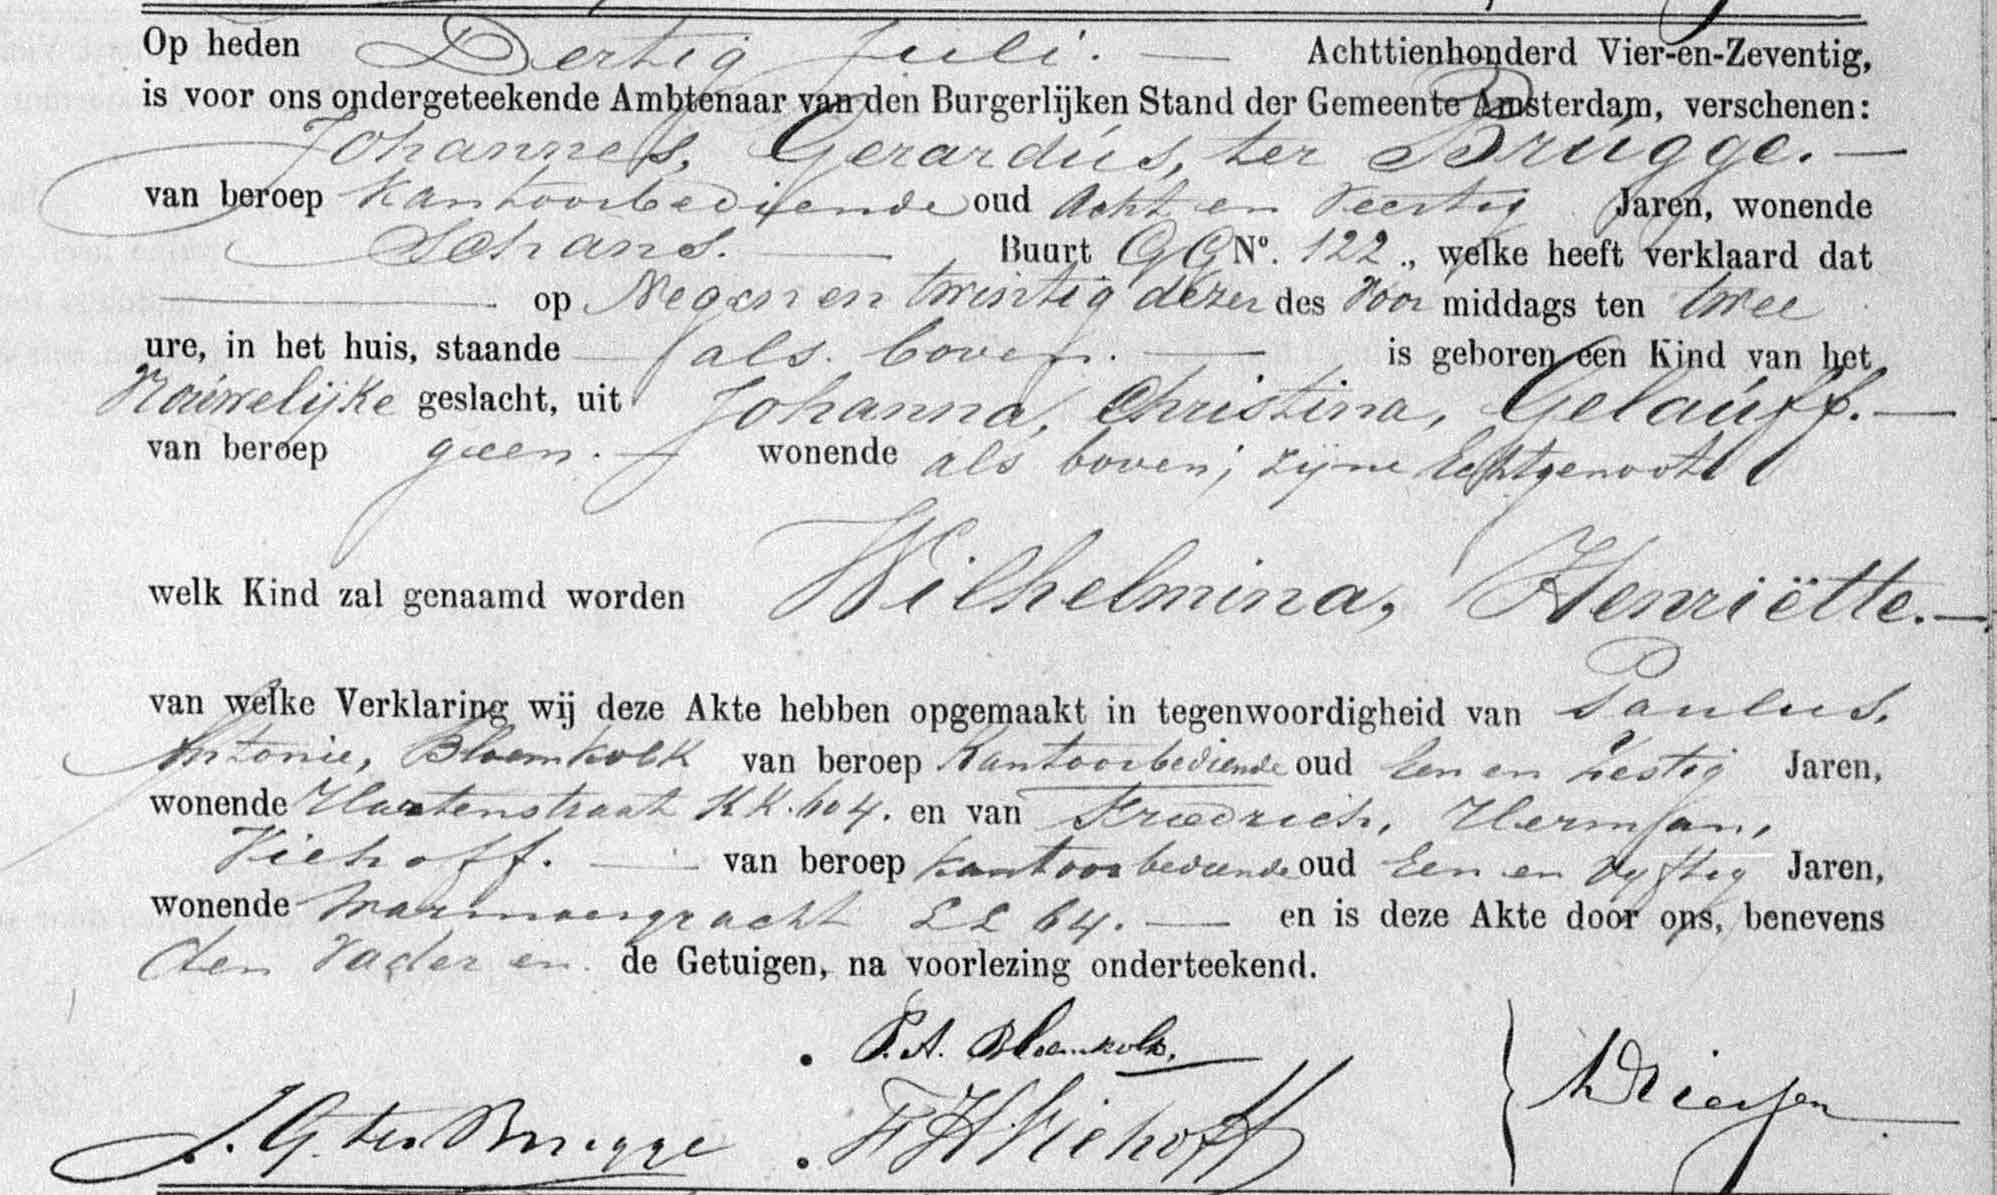 Op heden Dertig Juli. — Achttienhonderd Vier-en-Zeventig,
is voor ons ondergeteekende Ambtenaar van den Burgerlijken Stand der Gemeente Amsterdam, verschenen:
Johannes, Gerardús, ter Brúgge. —
van beroep Kantoorbediende oud Acht en Veertig Jaren, wonende
Schans. — Buurt GG No. 122., welke heeft verklaard dat
— op Negen en twintig dezer des Voor middags ten twee
ure, in het huis, staande — als boven. — is geboren een Kind van het
Vrouwelijke geslacht, uit Johanna, Christina, Gelaúff. —
van beroep geen. — wonende als boven; zijne Echtgenoote
welk Kind zal genaamd worden Wilhelmina, Henriëtte. —
van welke Verklaring wij deze Akte hebben opgemaakt in tegenwoordigheid van Paulus,
Antonie, Bloemkolk van beroep Kantoorbediende oud Een en Zestig Jaren,
wonende Hartenstraat KK. 604. en van Friedrich, Herman,
Viehoff. — van beroep Kantoorbediende oud Een en Vyftig Jaren,
wonende LL 64. — en is deze Akte door ons, benevens
den Vader en de Getuigen, na voorlezing onderteekend.
P. A. Bloemkolk,
J. G. ter Brugge F H Viehoff